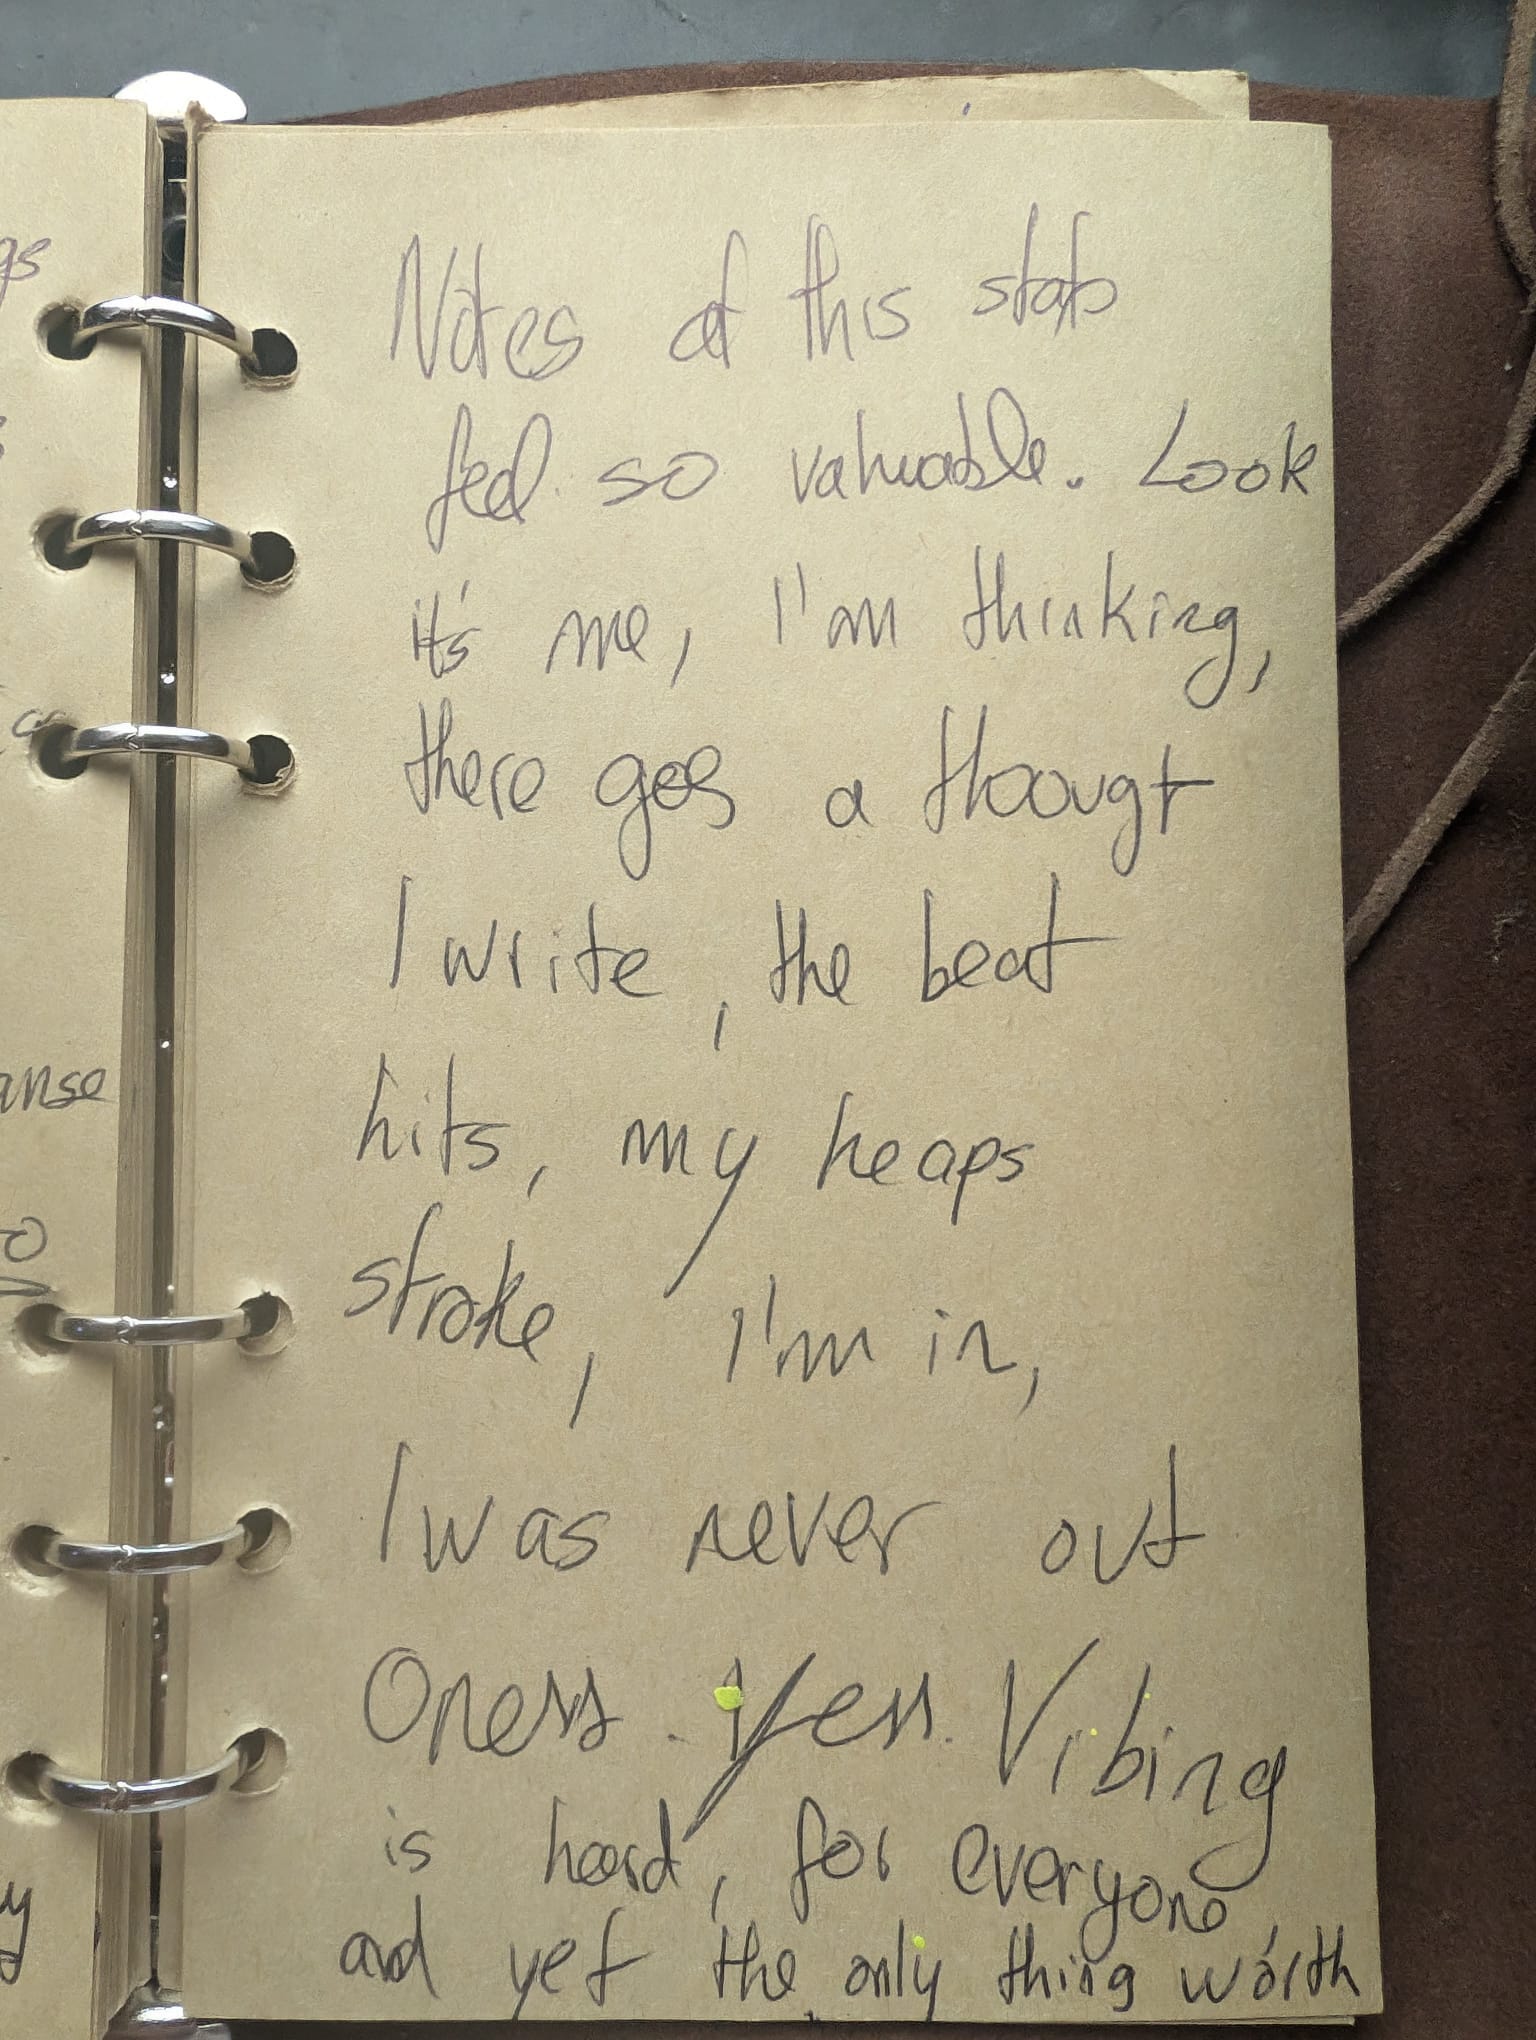 gs
Notes of this stats
feel so valuable. Look
it's me, I'm thinking,
there goes a thougt
I write, the beat
hits, my heaps
anse
stroke, I'm in,
I was never out
Oness. Yess. Vibing
is heard, for everyone
and yet the only thing worth